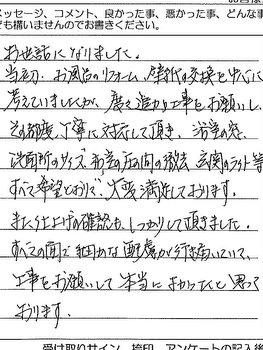 メッセージ、コメント、良かった事、悪かった事、どんな事
でも構いませんのでお書きください。
お世話になりました。
当初、お風呂のリフォーム、壁紙の交換を中心に
考えていましたが、度々追加工事をお願いし、
その都度、丁寧に対応して頂き、浴室の窓、
洗面所のサイズ、和室の の間の撤去、玄関のライト等
すべて希望どおりで、大変満足しております。
また仕上げの確認も、しっかりして頂きました。
すべての面で細かな配慮が行き届いていて、
工事をお願いして本当によかったと思って
おります。
受け取りサイン、捺印、アンケートの記入後